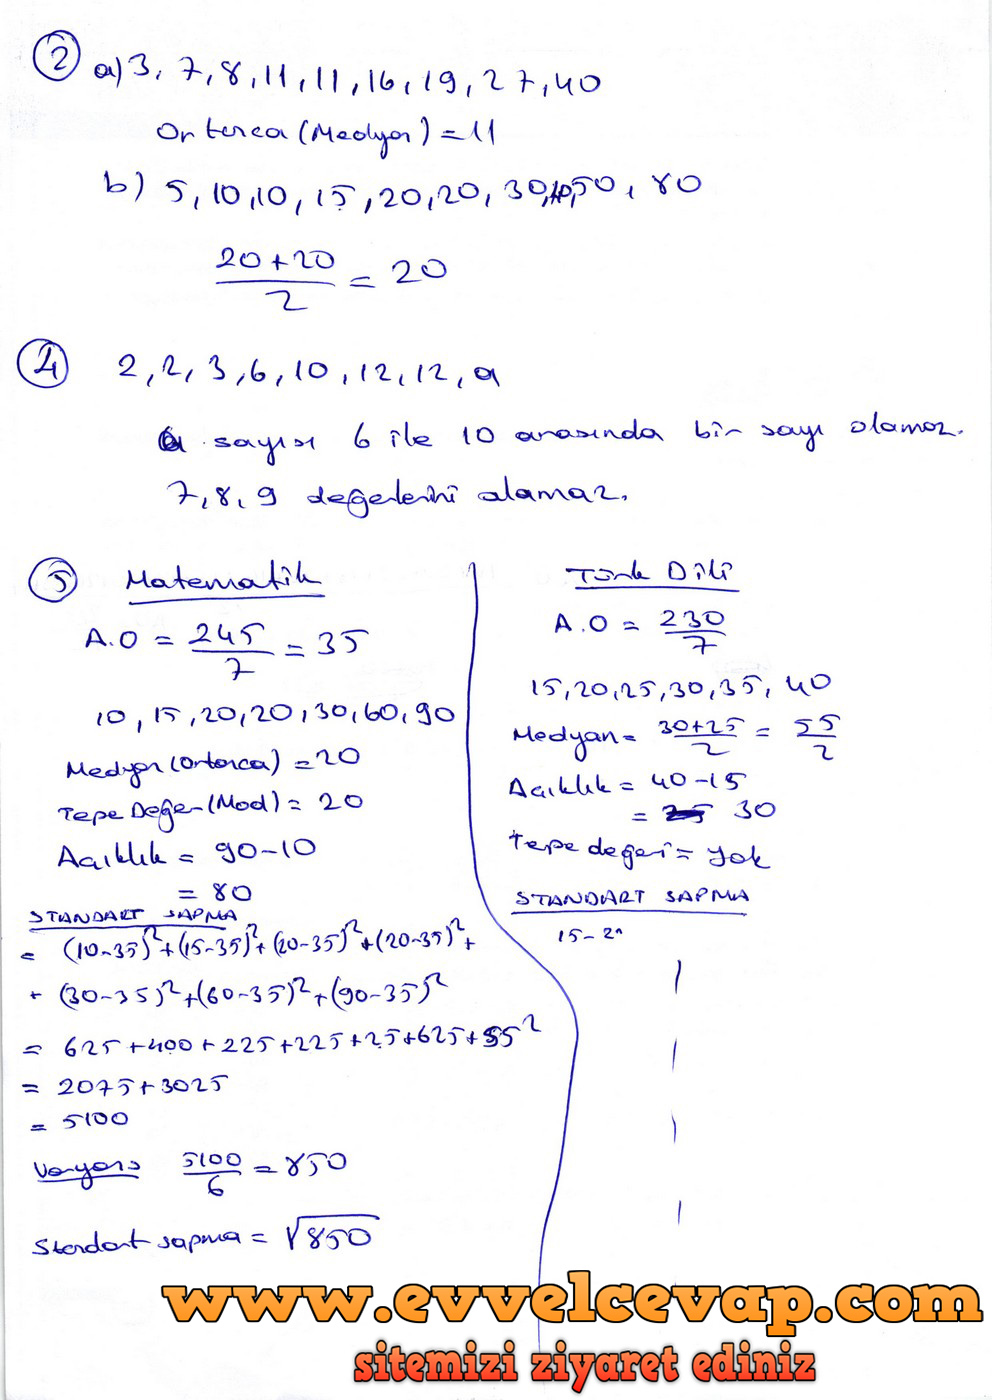 2 a) 3, 7, 8, 11, 11, 16, 19, 27, 40
Ortanca (Medyan) = 11
b) 5, 10, 10, 15, 20, 20, 30, 40, 50, 80
20+20 / 2 = 20
4 2, 2, 3, 6, 10, 12, 12, a
a sayısı 6 ile 10 arasında bir sayı olamaz.
7, 8, 9 değerlerini alamaz.
5 Matematik
A.O = 245/7 = 35
10, 15, 20, 20, 30, 60, 90
Medyan (Ortanca) = 20
Tepe Değer (Mod) = 20
Açıklık = 90-10
= 80
STANDART SAPMA
= (10-35)²+(15-35)²+(20-35)²+(20-35)²+
+ (30-35)²+(60-35)²+(90-35)²
= 625+400+225+225+25+625+55²
= 2075+3025
= 5100
Varyans 5100/6 = 850
Standart sapma = √850
Türk Dili
A.O = 230/7
15, 20, 25, 30, 35, 40
Medyan = 30+25 / 2 = 55/2
Açıklık = 40-15
= 30
Tepe değeri = yok
STANDART SAPMA
www.evvelcevap.com
sitemizi ziyaret ediniz